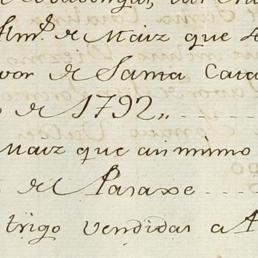 Alm.s de Maiz que
vor de Santa Cata
de 1792,,
Maiz que animimo
de Paraxe
trigo vendidas a